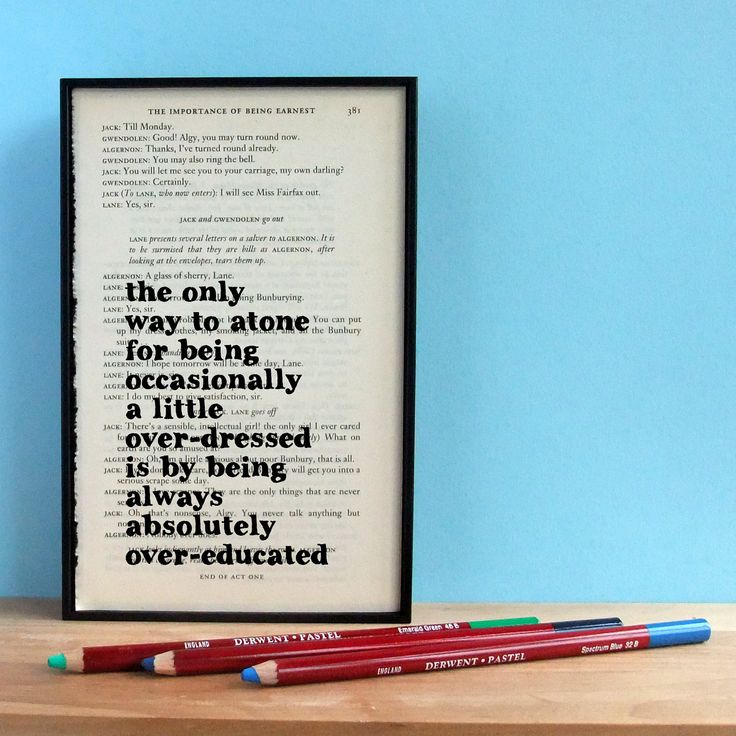 THE IMPORTANCE OF BEING EARNEST 381
JACK: Till Monday.
GWENDOLEN: Good! Algy, you may turn round now.
ALGERNON: Thanks, I've turned round already.
GWENDOLEN: You may also ring the bell.
JACK: You will let me see you to your carriage, my own darling?
GWENDOLEN: Certainly.
JACK (To LANE, who now enters): I will see Miss Fairfax out.
LANE: Yes, sir.
JACK and GWENDOLEN go out
LANE presents several letters on a salver to ALGERNON. It is
to be surmised that they are bills as ALGERNON, after
looking at the envelopes, tears them up.
ALGERNON: A glass of sherry, Lane.
the only
way to atone
for being
occasionally
a little
over-dressed
is by being
always
absolutely
over-educated
LANE: Yes, sir.
ALGERNON: I hope tomorrow will be a fine day, Lane.
LANE: I do my best to give satisfaction, sir.
LANE goes off
JACK: There's a sensible, intellectual girl! the only girl I ever cared
What on
about poor Bunbury, that is all.
will get you into a
serious scrape some day.
They are the only things that are never
JACK: Oh, that's nonsense, Algy. You never talk anything but
END OF ACT ONE
ENGLAND DERWENT • PASTEL Emerald Green 46 B
ENGLAND DERWENT • PASTEL Spectrum Blue 32 B